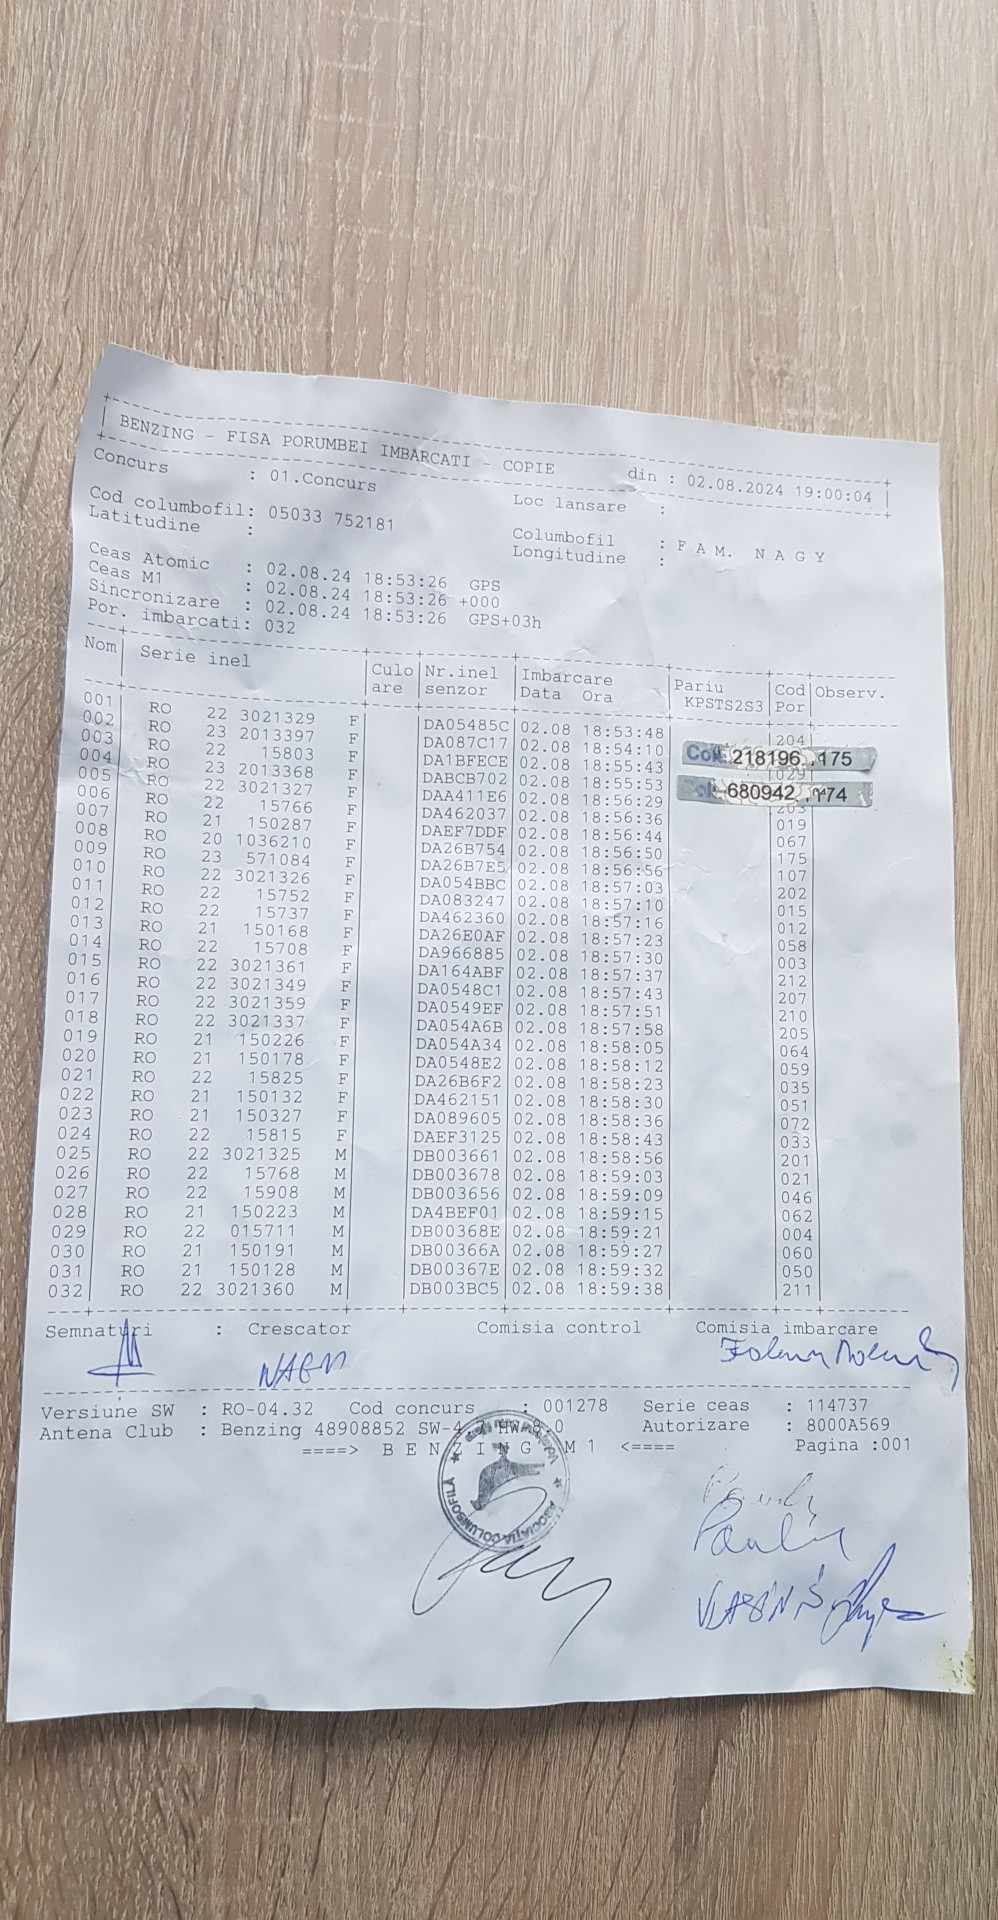 BENZING - FISA PORUMBEI IMBARCATI - COPIE din : 02.08.2024 19:00:04
Concurs : 01.Concurs Loc lansare :
Cod columbofil: 05033 752181 Columbofil : F A M. N A G Y
Latitudine : Longitudine :
Ceas Atomic : 02.08.24 18:53:26 GPS
Ceas M1 : 02.08.24 18:53:26 +000
Sincronizare : 02.08.24 18:53:26 GPS+03h
Por. imbarcati: 032
Nom Serie inel Culo Nr.inel Imbarcare Pariu Cod Observ.
are senzor Data Ora KPSTS2S3 Por
001 RO 22 3021329 F DA05485C 02.08 18:53:48 204
002 RO 23 2013397 F DA087C17 02.08 18:54:10 218196 175
003 RO 22 15803 F DA1BFECE 02.08 18:55:43 029
004 RO 23 2013368 F DABCB702 02.08 18:55:53 680942 174
005 RO 22 3021327 F DAA411E6 02.08 18:56:29 203
006 RO 22 15766 F DA462037 02.08 18:56:36 019
007 RO 21 150287 F DAEF7DDF 02.08 18:56:44 067
008 RO 20 1036210 F DA26B754 02.08 18:56:50 175
009 RO 23 571084 F DA26B7E5 02.08 18:56:56 107
010 RO 22 3021326 F DA054BBC 02.08 18:57:03 202
011 RO 22 15752 F DA083247 02.08 18:57:10 015
012 RO 22 15737 F DA462360 02.08 18:57:16 012
013 RO 21 150168 F DA26E0AF 02.08 18:57:23 058
014 RO 22 15708 F DA966885 02.08 18:57:30 003
015 RO 22 3021361 F DA164ABF 02.08 18:57:37 212
016 RO 22 3021349 F DA0548C1 02.08 18:57:43 207
017 RO 22 3021359 F DA0549EF 02.08 18:57:51 210
018 RO 22 3021337 F DA054A6B 02.08 18:57:58 205
019 RO 21 150226 F DA054A34 02.08 18:58:05 064
020 RO 21 150178 F DA0548E2 02.08 18:58:12 059
021 RO 22 15825 F DA26B6F2 02.08 18:58:23 035
022 RO 21 150132 F DA462151 02.08 18:58:30 051
023 RO 21 150327 F DA089605 02.08 18:58:36 072
024 RO 22 15815 F DAEF3125 02.08 18:58:43 033
025 RO 22 3021325 M DB003661 02.08 18:58:56 201
026 RO 22 15768 M DB003678 02.08 18:59:03 021
027 RO 22 15908 M DB003656 02.08 18:59:09 046
028 RO 21 150223 M DA4BEF01 02.08 18:59:15 062
029 RO 22 015711 M DB00368E 02.08 18:59:21 004
030 RO 21 150191 M DB00366A 02.08 18:59:27 060
031 RO 21 150128 M DB00367E 02.08 18:59:32 050
032 RO 22 3021360 M DB003BC5 02.08 18:59:38 211
Semnaturi : Crescator Comisia control Comisia imbarcare
NAGY
Versiune SW : RO-04.32 Cod concurs : 001278 Serie ceas : 114737
Antena Club : Benzing 48908852 Autorizare : 8000A569
====> B E N Z I N G M1 <==== Pagina :001
ASOCIAȚIA COLUMBOFILĂ